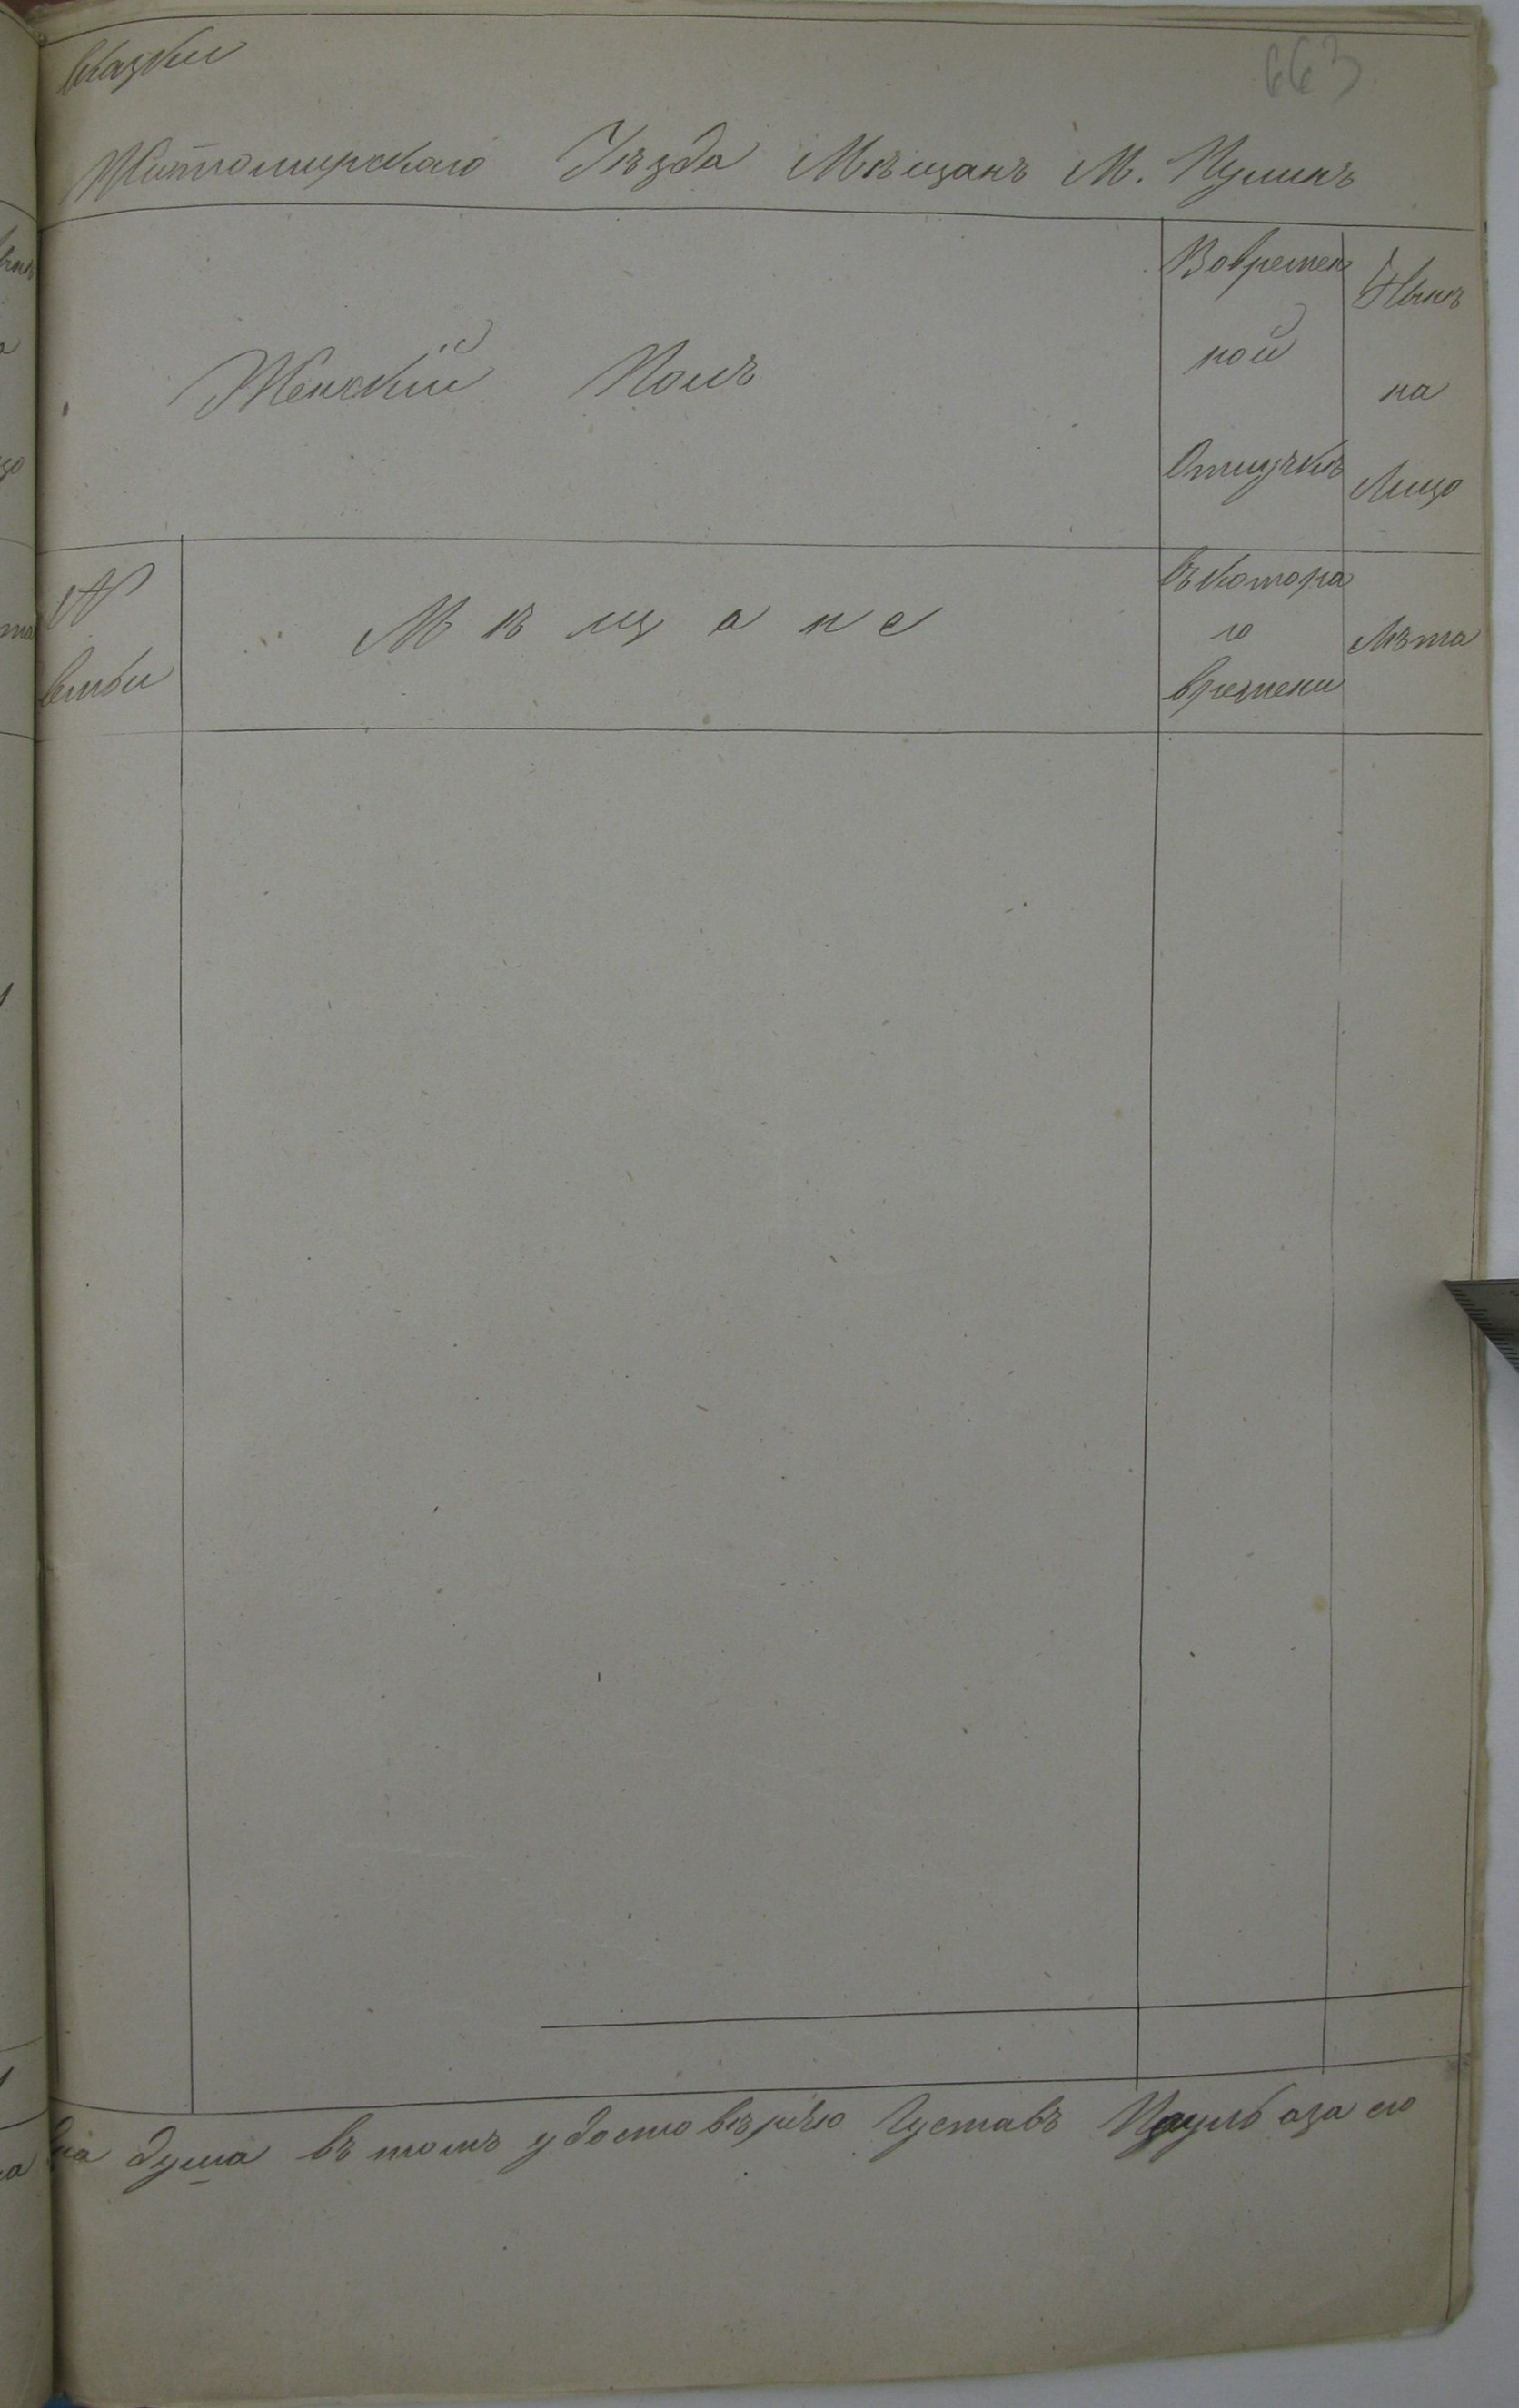 сказки
663
Житомирскаго Уѣзда Мѣщанъ М. Пулинъ
Женскій Полъ
Вовремен
ной
Отлучкѣ
Нынѣ
на
Лицо
№
семьи
Мѣщане
Съ котора
го
времени
Лѣта
душа въ томъ удостовѣряю Густавъ Пауль аза его